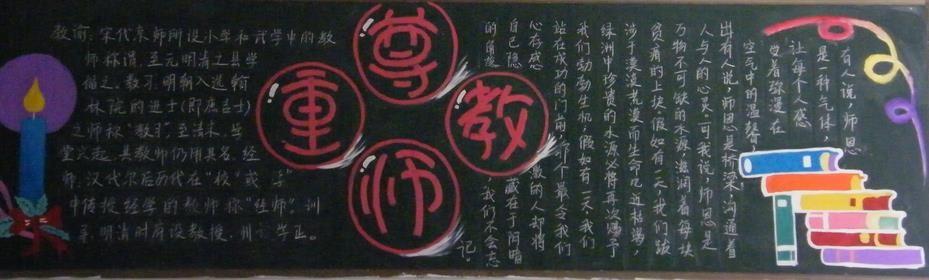 尊
重
教
师
教谕：宋代京师所设小学和武学中的教
师称谓。至元明清之县学
循之。教习：明朝入选翰
林院的进士(即庶吉士)
之师称"教习"。至清末，学
堂兴起，其教师仍用其名。经
师：汉代尔后历代在"校"或"学"
中传授经学的教师称"经师"。训
导：明清时府设教授，州设学正。
有人说，师恩
是一种气体，
让每个人感
觉着弥漫在
空气中的温馨
出有人说，师恩是桥梁，沟通着
人与人的心灵。可我说，师恩是
万物不可缺的水源，滋润着每块
贫瘠的土块。假如有一天，我们跋
涉于漫漫荒漠而生命几近枯竭，
绿洲中珍贵的水源必将再次赐予
我们勃勃生机；假如有一天，我们
站在成功的门前，那个最令我们
心存感激的人却将
自己隐藏在于阴暗
的角落，我们不会忘
记